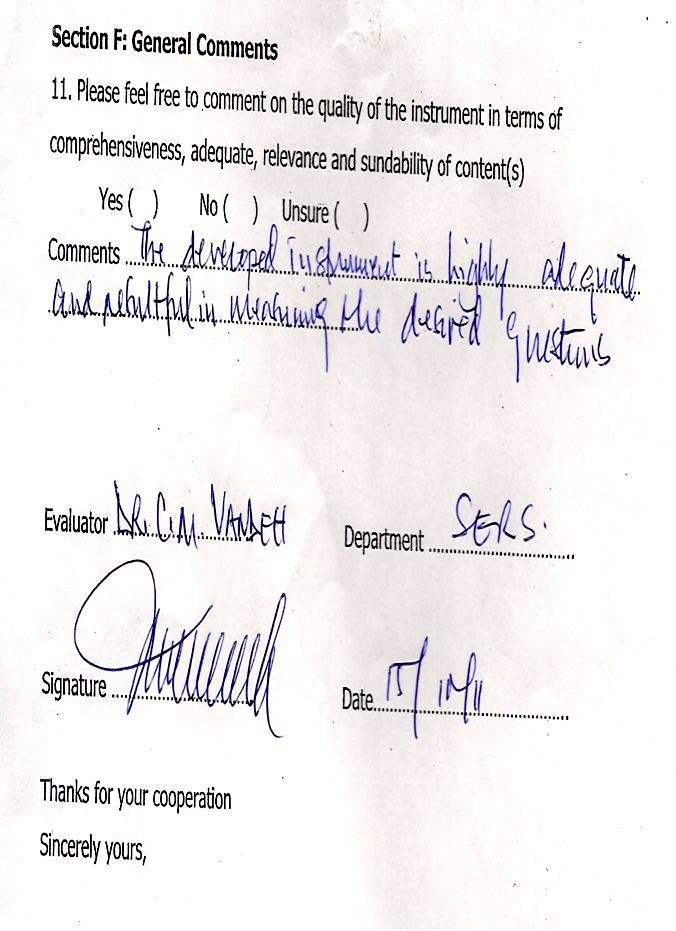 Section F: General Comments
11. Please feel free to comment on the quality of the instrument in terms of
comprehensiveness, adequate, relevance and sundability of content(s)
Yes ( ) No ( ) Unsure ( )
Comments The developed instrument is highly adequate
and in measuring the desired questions
Evaluator DR. C.M. VANDEH Department SERS.
Signature Date 15/10/11
Thanks for your cooperation
Sincerely yours,